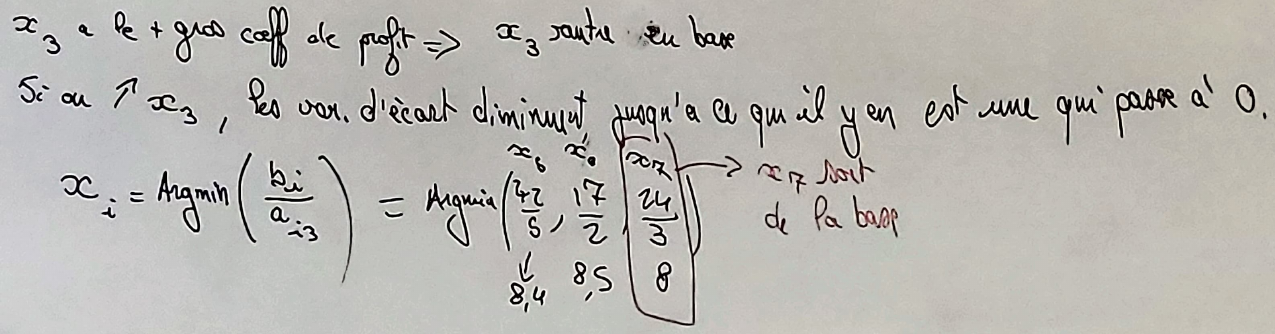 x₃ a le + gros coeff de profit => x₃ rentre en base
Si on ↑ x₃, les var. d'écart diminuent, jusqu'a ce qu'il y en est une qui passe a' 0.
x₅ x₆ x₇ → x₇ sort
x_i = Argmin (b_i / a_i3) = Argmin (42/5, 17/2, 24/3) de la base
8,4 8,5 8